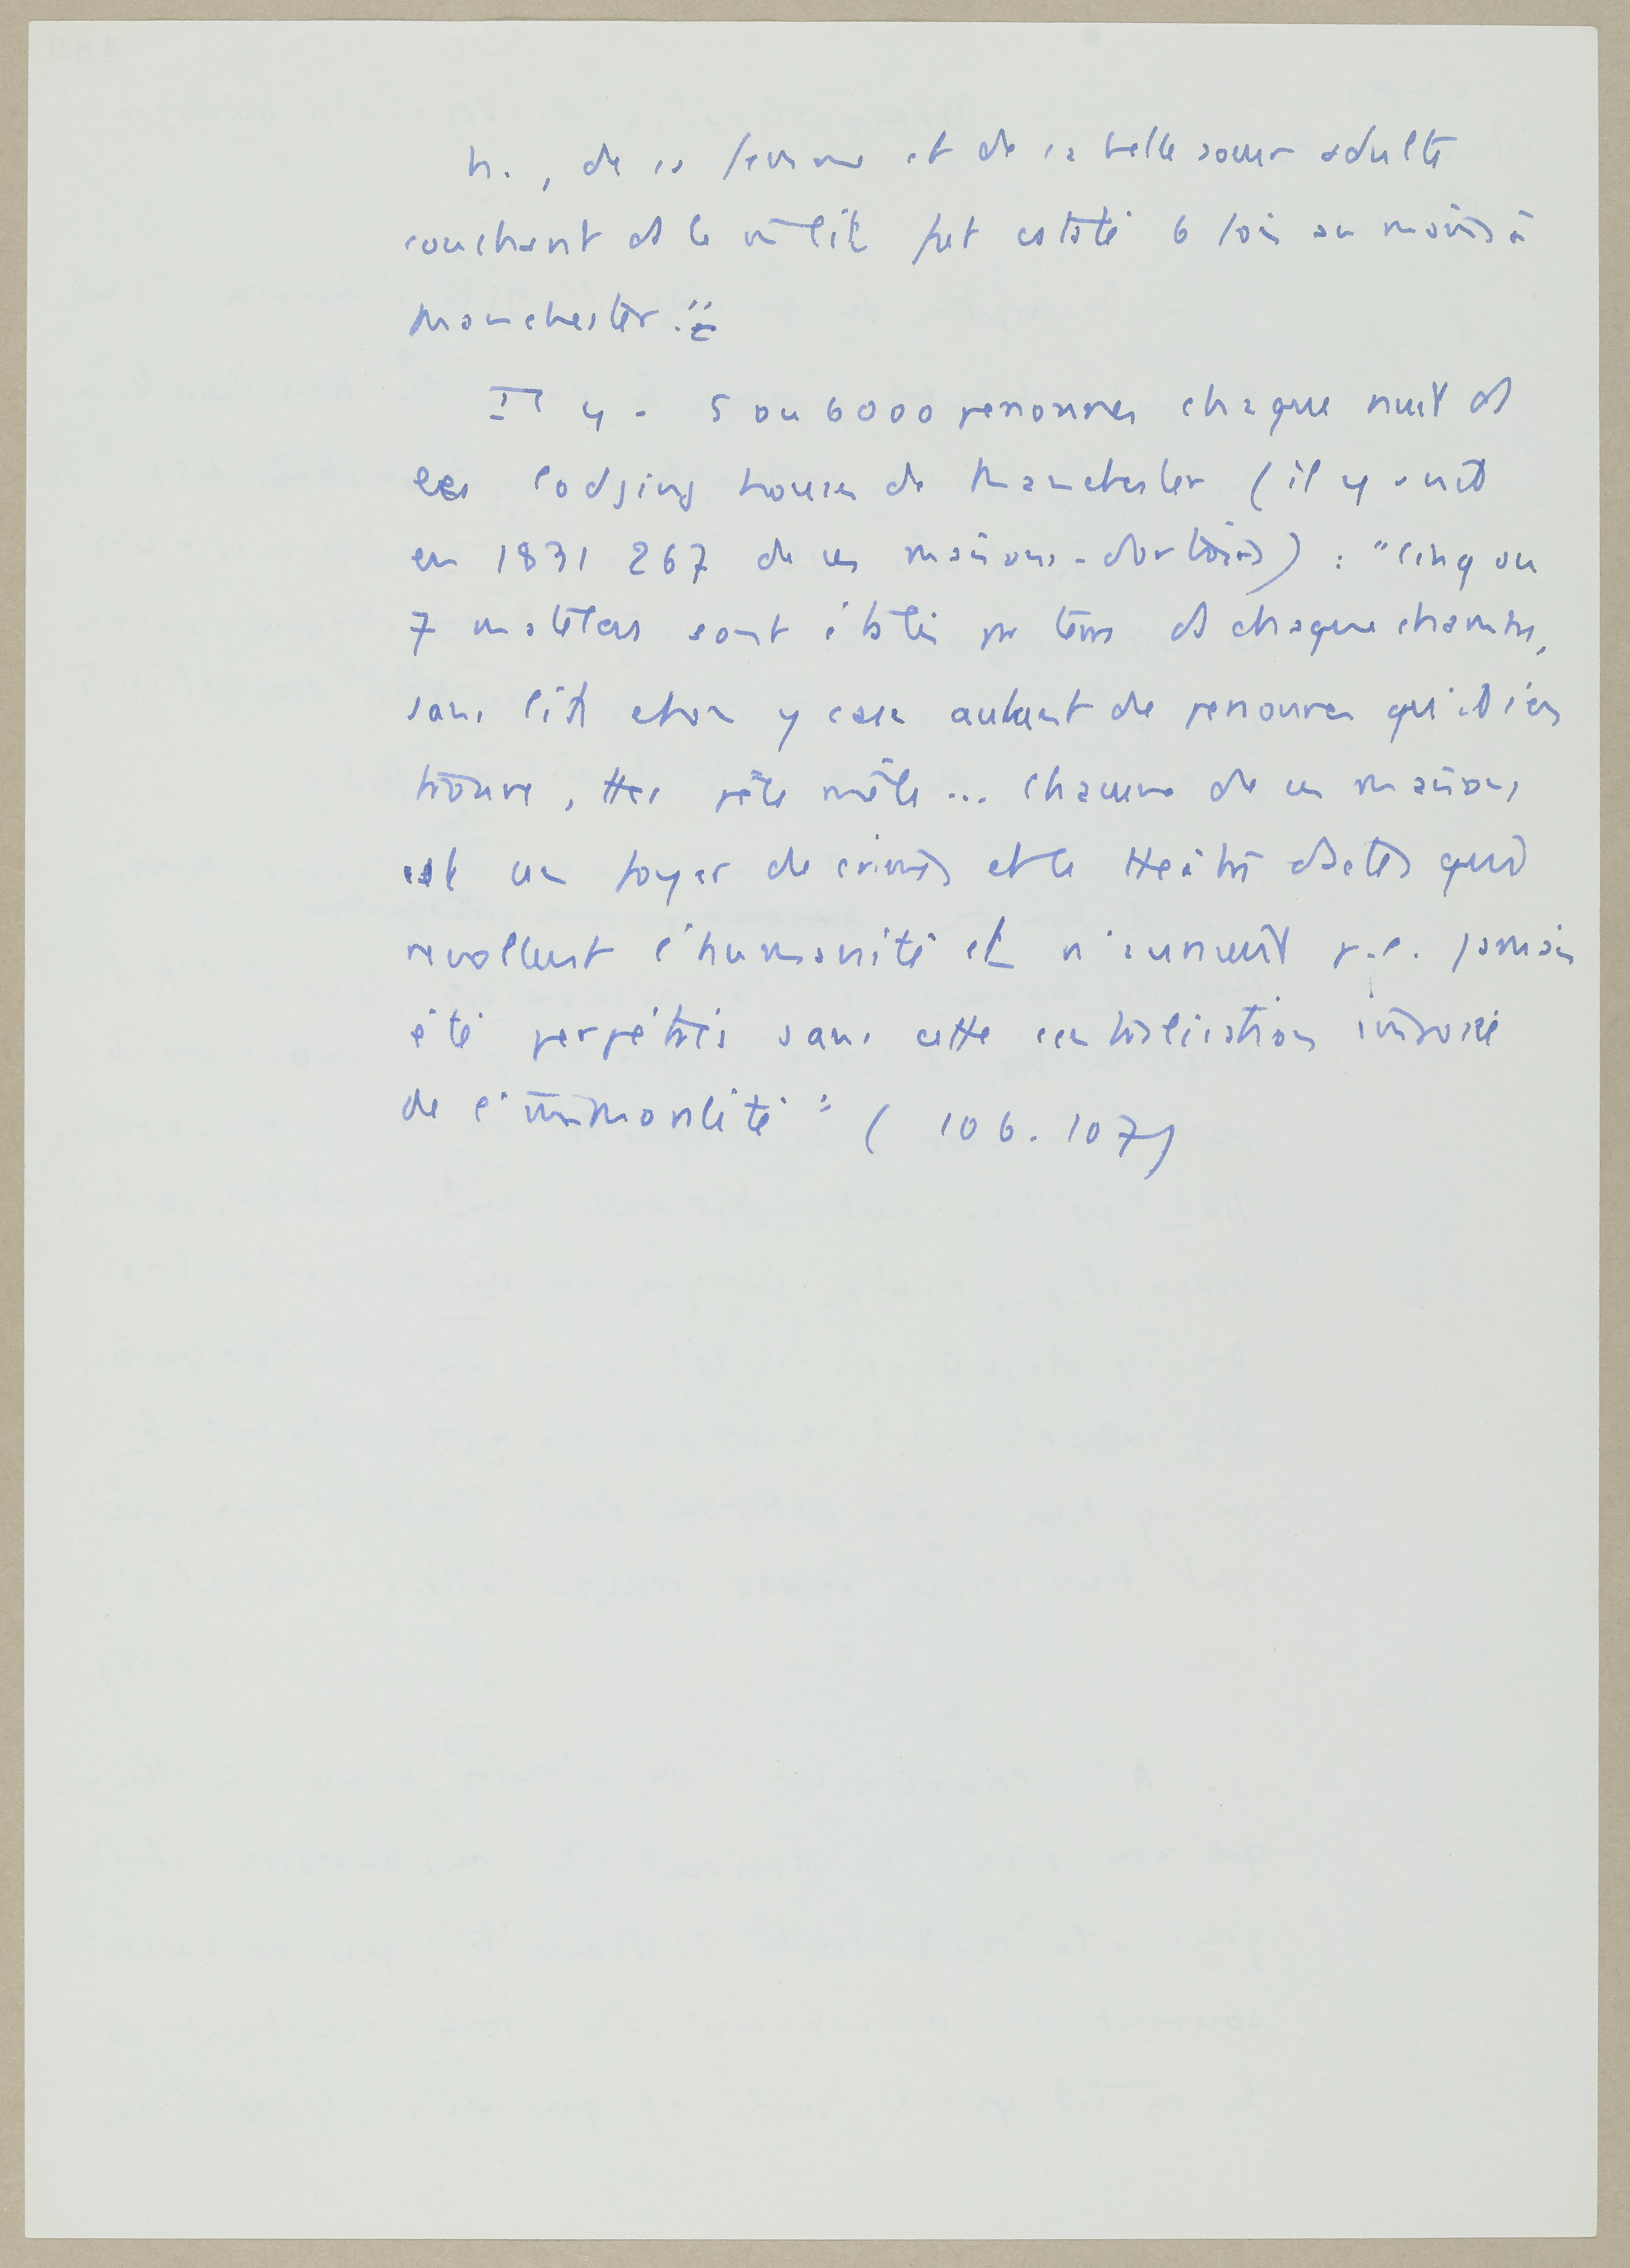 h., de sa femme et de sa belle sœur adulte
couchant ds le m̂ lit fut cstaté 6 fois au moins à
Manchester."
Il y a 5 ou 6000 personnes chaque nuit ds
les lodging houses de Manchester (il y avait
en 1831 267 de ces maisons-dortoirs) : "Cinq ou
7 matelas sont établis par terre ds chaque chambre,
sans lits et on y case autant de personnes qu'il s'en
trouve, ttes pêle mêle ... Chacune de ces maisons
est un foyer de crimes et le théâtre d'actes qui
revoltent l'humanité et n'auraient p.e. jamais
été perpétrés sans cette centralisation imposée
de l'immoralité" (106.107)